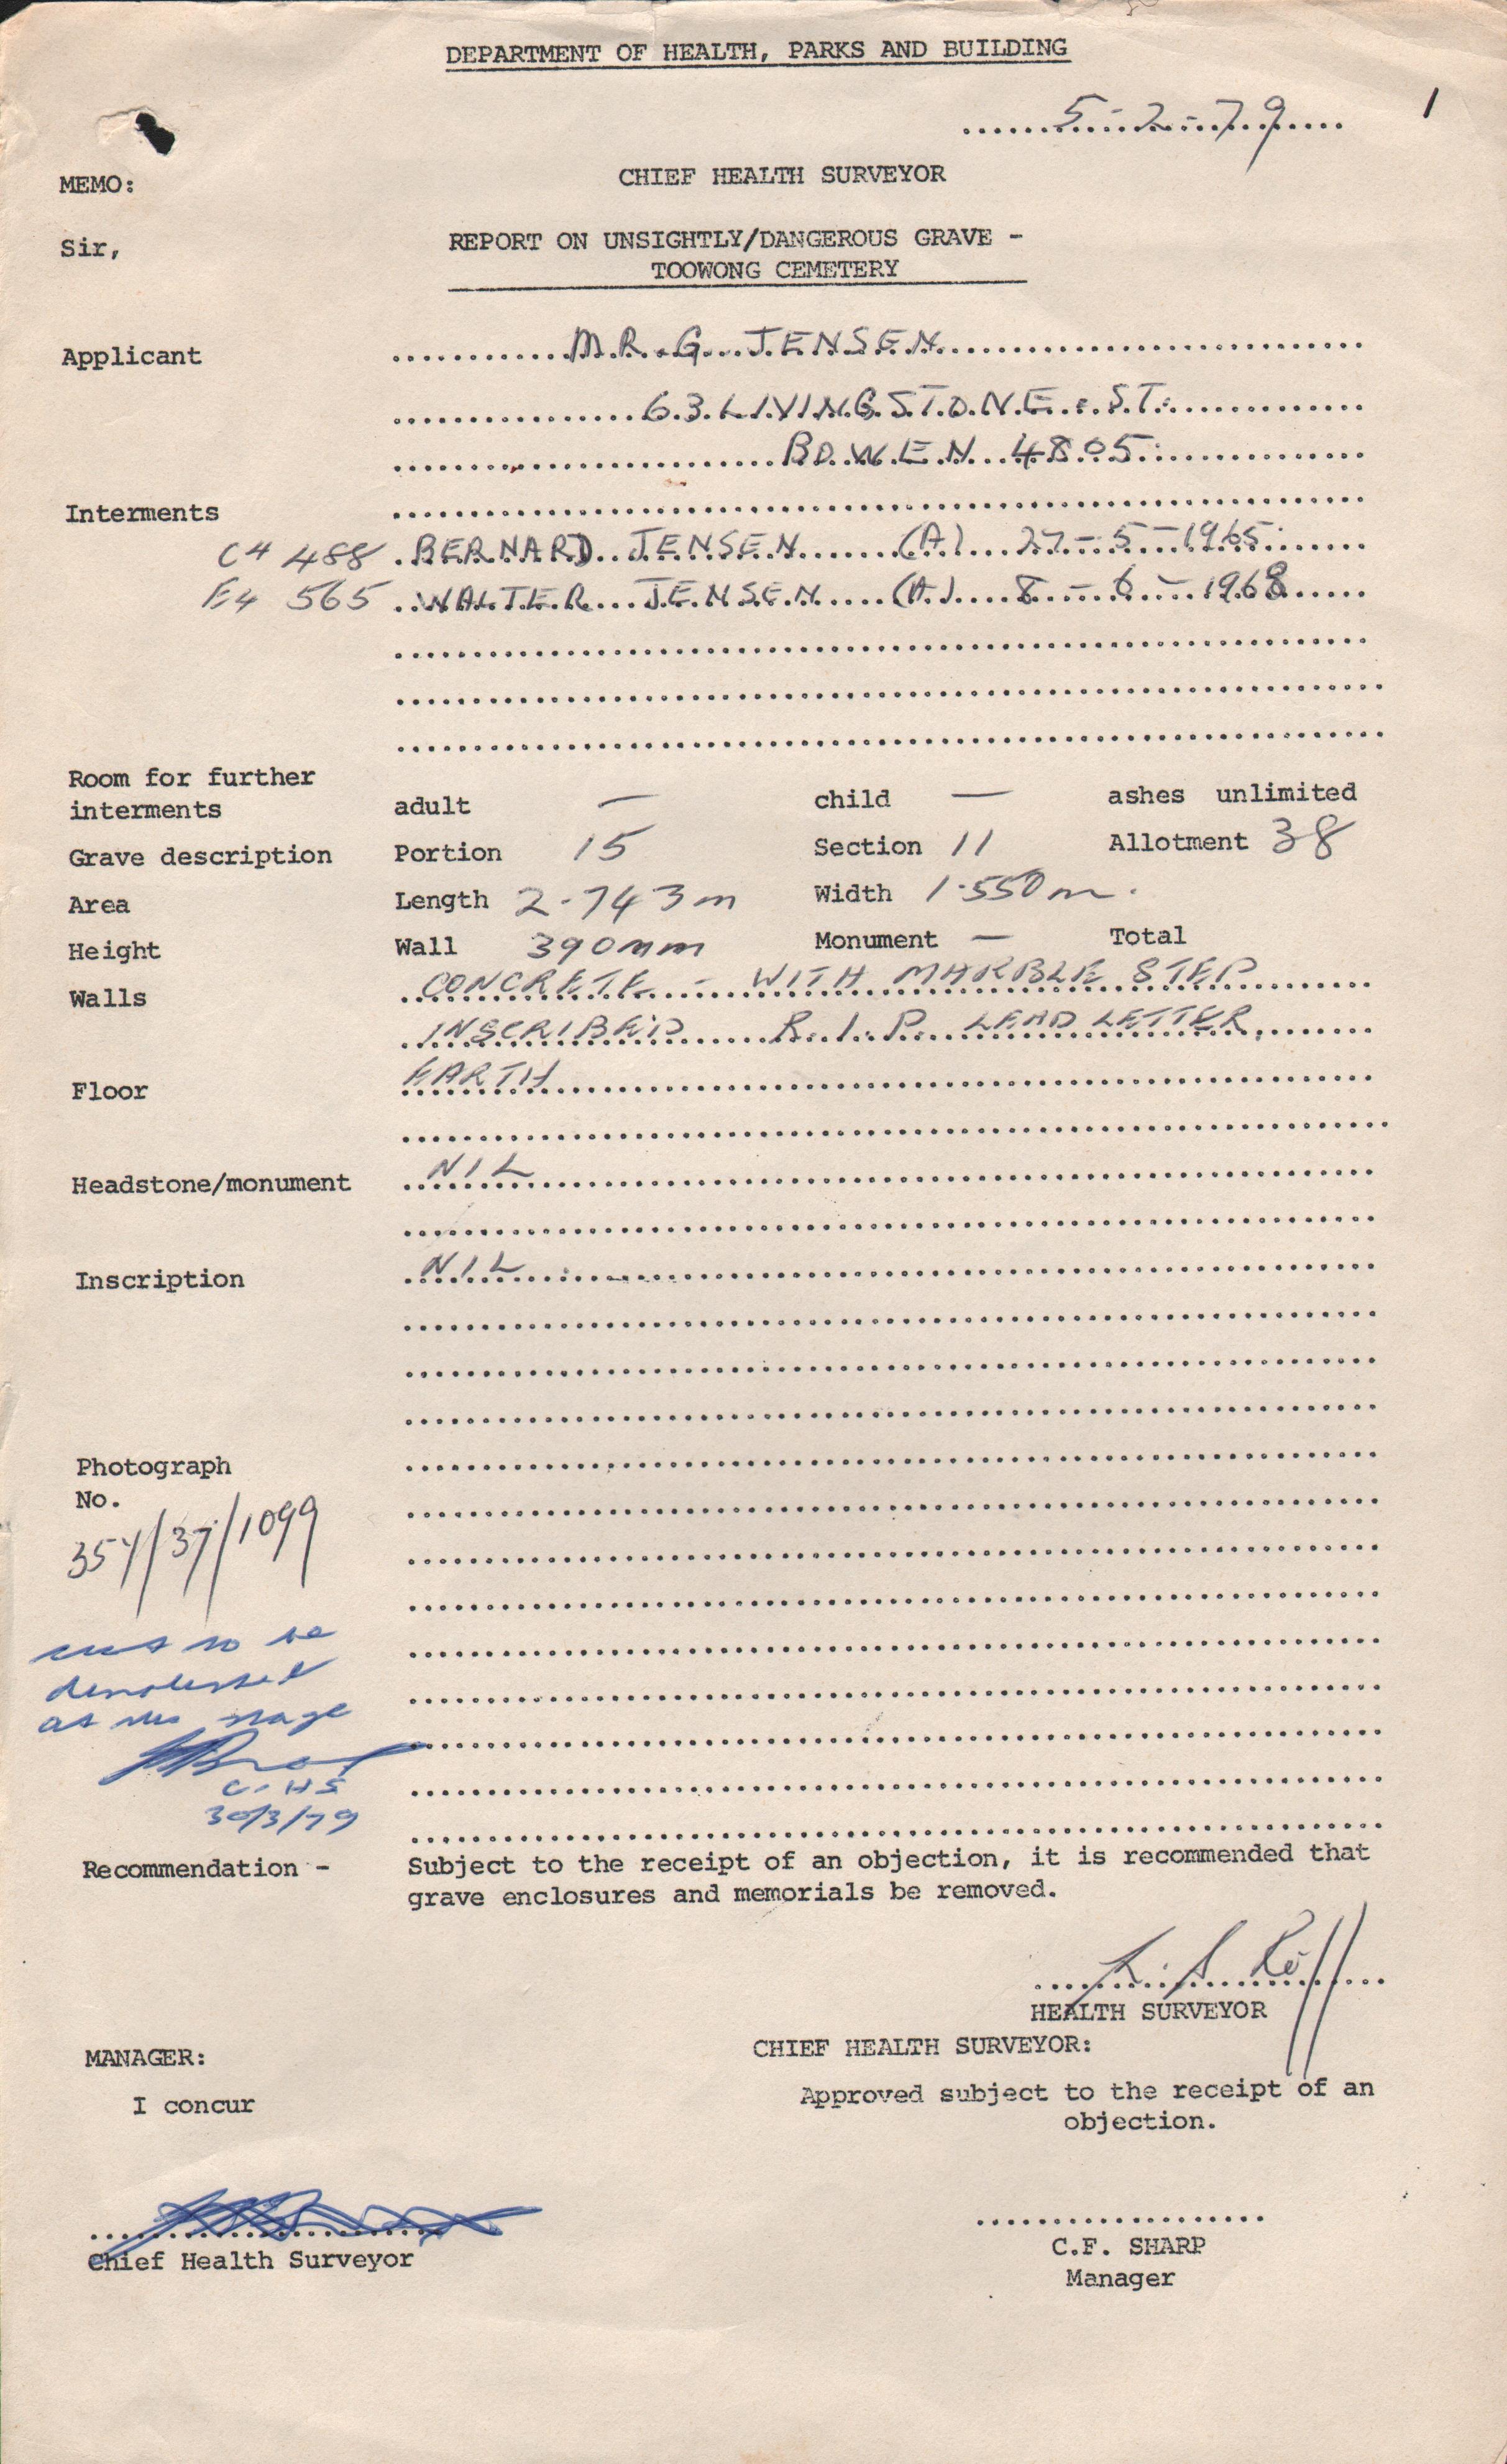 DEPARTMENT OF HEALTH, PARKS AND BUILDING
5-2-79
1
MEMO:
CHIEF HEALTH SURVEYOR
Sir,
REPORT ON UNSIGHTLY/DANGEROUS GRAVE -
TOOWONG CEMETERY
Applicant MR. G. JENSEN
63 LIVINGSTONE ST.
BOWEN 4805
Interments
C4 488 BERNARD JENSEN (A) 27-5-1965
E4 565 WALTER JENSEN (A) 8-6-1968
Room for further
interments adult — child — ashes unlimited
Grave description Portion 15 Section 11 Allotment 38
Area Length 2.743m Width 1.550m.
Height Wall 390mm Monument — Total
Walls CONCRETE - WITH MARBLE STEP
INSCRIBED R.I.P. LEAD LETTER.
Floor EARTH
Headstone/monument NIL
Inscription NIL
Photograph
No.
354/37/1099
not to be
demolished
at this stage
C.HS
30/3/79
Recommendation - Subject to the receipt of an objection, it is recommended that
grave enclosures and memorials be removed.
HEALTH SURVEYOR
MANAGER:
CHIEF HEALTH SURVEYOR:
I concur
Approved subject to the receipt of an
objection.
Chief Health Surveyor
C.F. SHARP
Manager